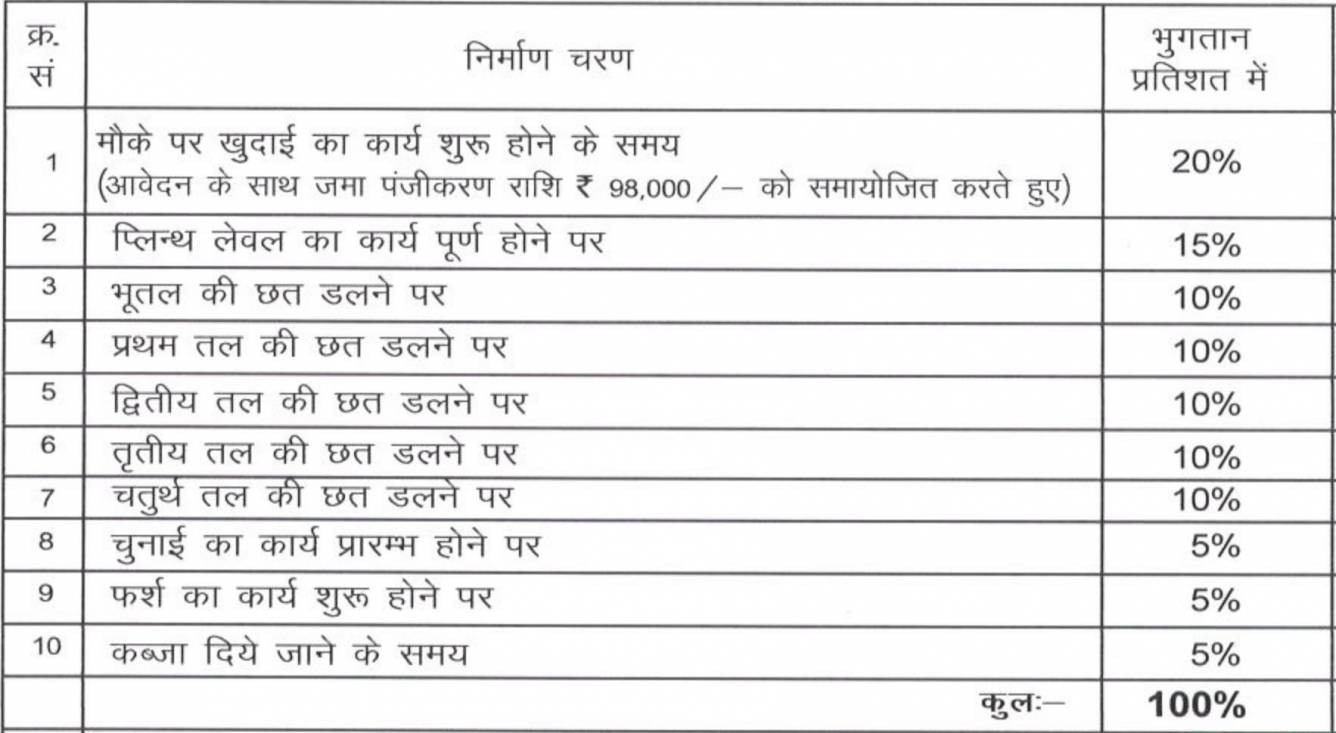 क्र. सं निर्माण चरण भुगतान प्रतिशत में
1 मौके पर खुदाई का कार्य शुरू होने के समय 20%
(आवेदन के साथ जमा पंजीकरण राशि ₹ 98,000/– को समायोजित करते हुए)
2 प्लिन्थ लेवल का कार्य पूर्ण होने पर 15%
3 भूतल की छत डलने पर 10%
4 प्रथम तल की छत डलने पर 10%
5 द्वितीय तल की छत डलने पर 10%
6 तृतीय तल की छत डलने पर 10%
7 चतुर्थ तल की छत डलने पर 10%
8 चुनाई का कार्य प्रारम्भ होने पर 5%
9 फर्श का कार्य शुरू होने पर 5%
10 कब्जा दिये जाने के समय 5%
कुलः– 100%